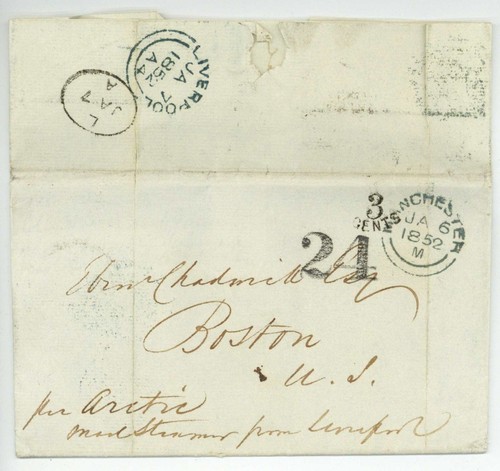 LIVERPOOL
JA 7
1852
A
L
JA 7
A
3
CENTS
MANCHESTER
JA 6
1852
M
24
Ebenr Chadwick Esq
Boston
U. S.
per Arctic
mail steamer from Liverpool